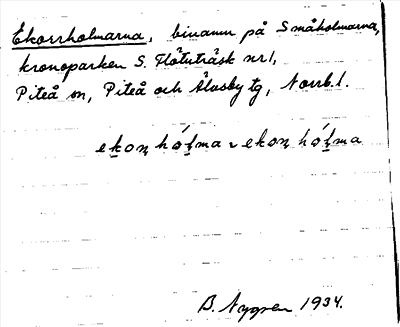 Ekorrholmarna, binamn på Småholmarna,
kronoparken S. Flötuträsk nr 1,
Piteå sn, Piteå och Älvsby tg, Norrb. l.
ekoꞃ hóḻma ~ ekoꞃ hóḻma
B. Nygren 1934.